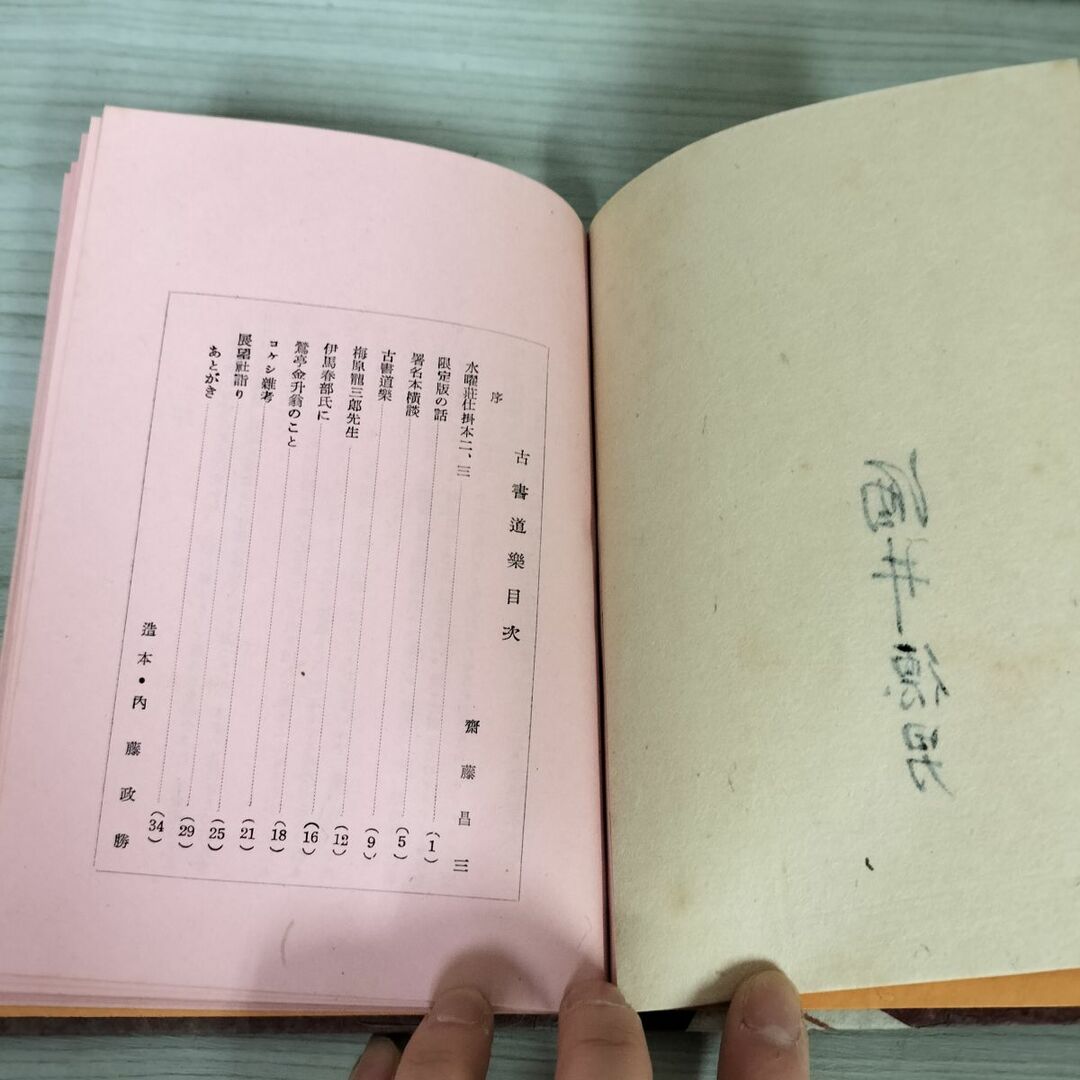 酒井徳男
古書道樂目次
序 齋藤昌三
水曜莊仕掛本二、三 (1)
限定版の話 (5)
署名本橫談 (9)
古書道樂 (12)
梅原龍三郎先生 (16)
伊馬春部氏に (18)
鶯亭金升翁のこと (21)
コケシ雜考 (25)
展望社詣り (29)
あとがき (34)
造本・内藤政勝